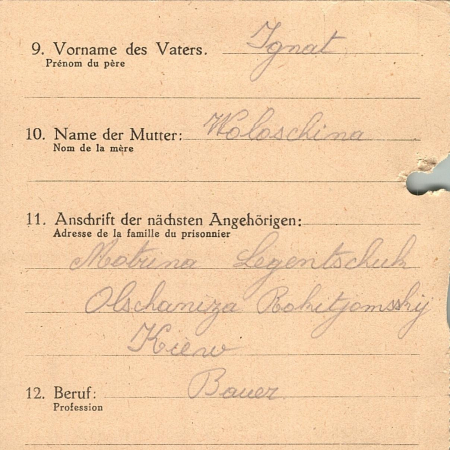 9. Vorname des Vaters. Ignat
Prénom du père
10. Name der Mutter: Woloschina
Nom de la mère
11. Anschrift der nächsten Angehörigen:
Adresse de la famille du prisonnier
Matrina Legentschuk
Olschaniza Rokitjomsskij
Kiew
12. Beruf: Bauer
Profession